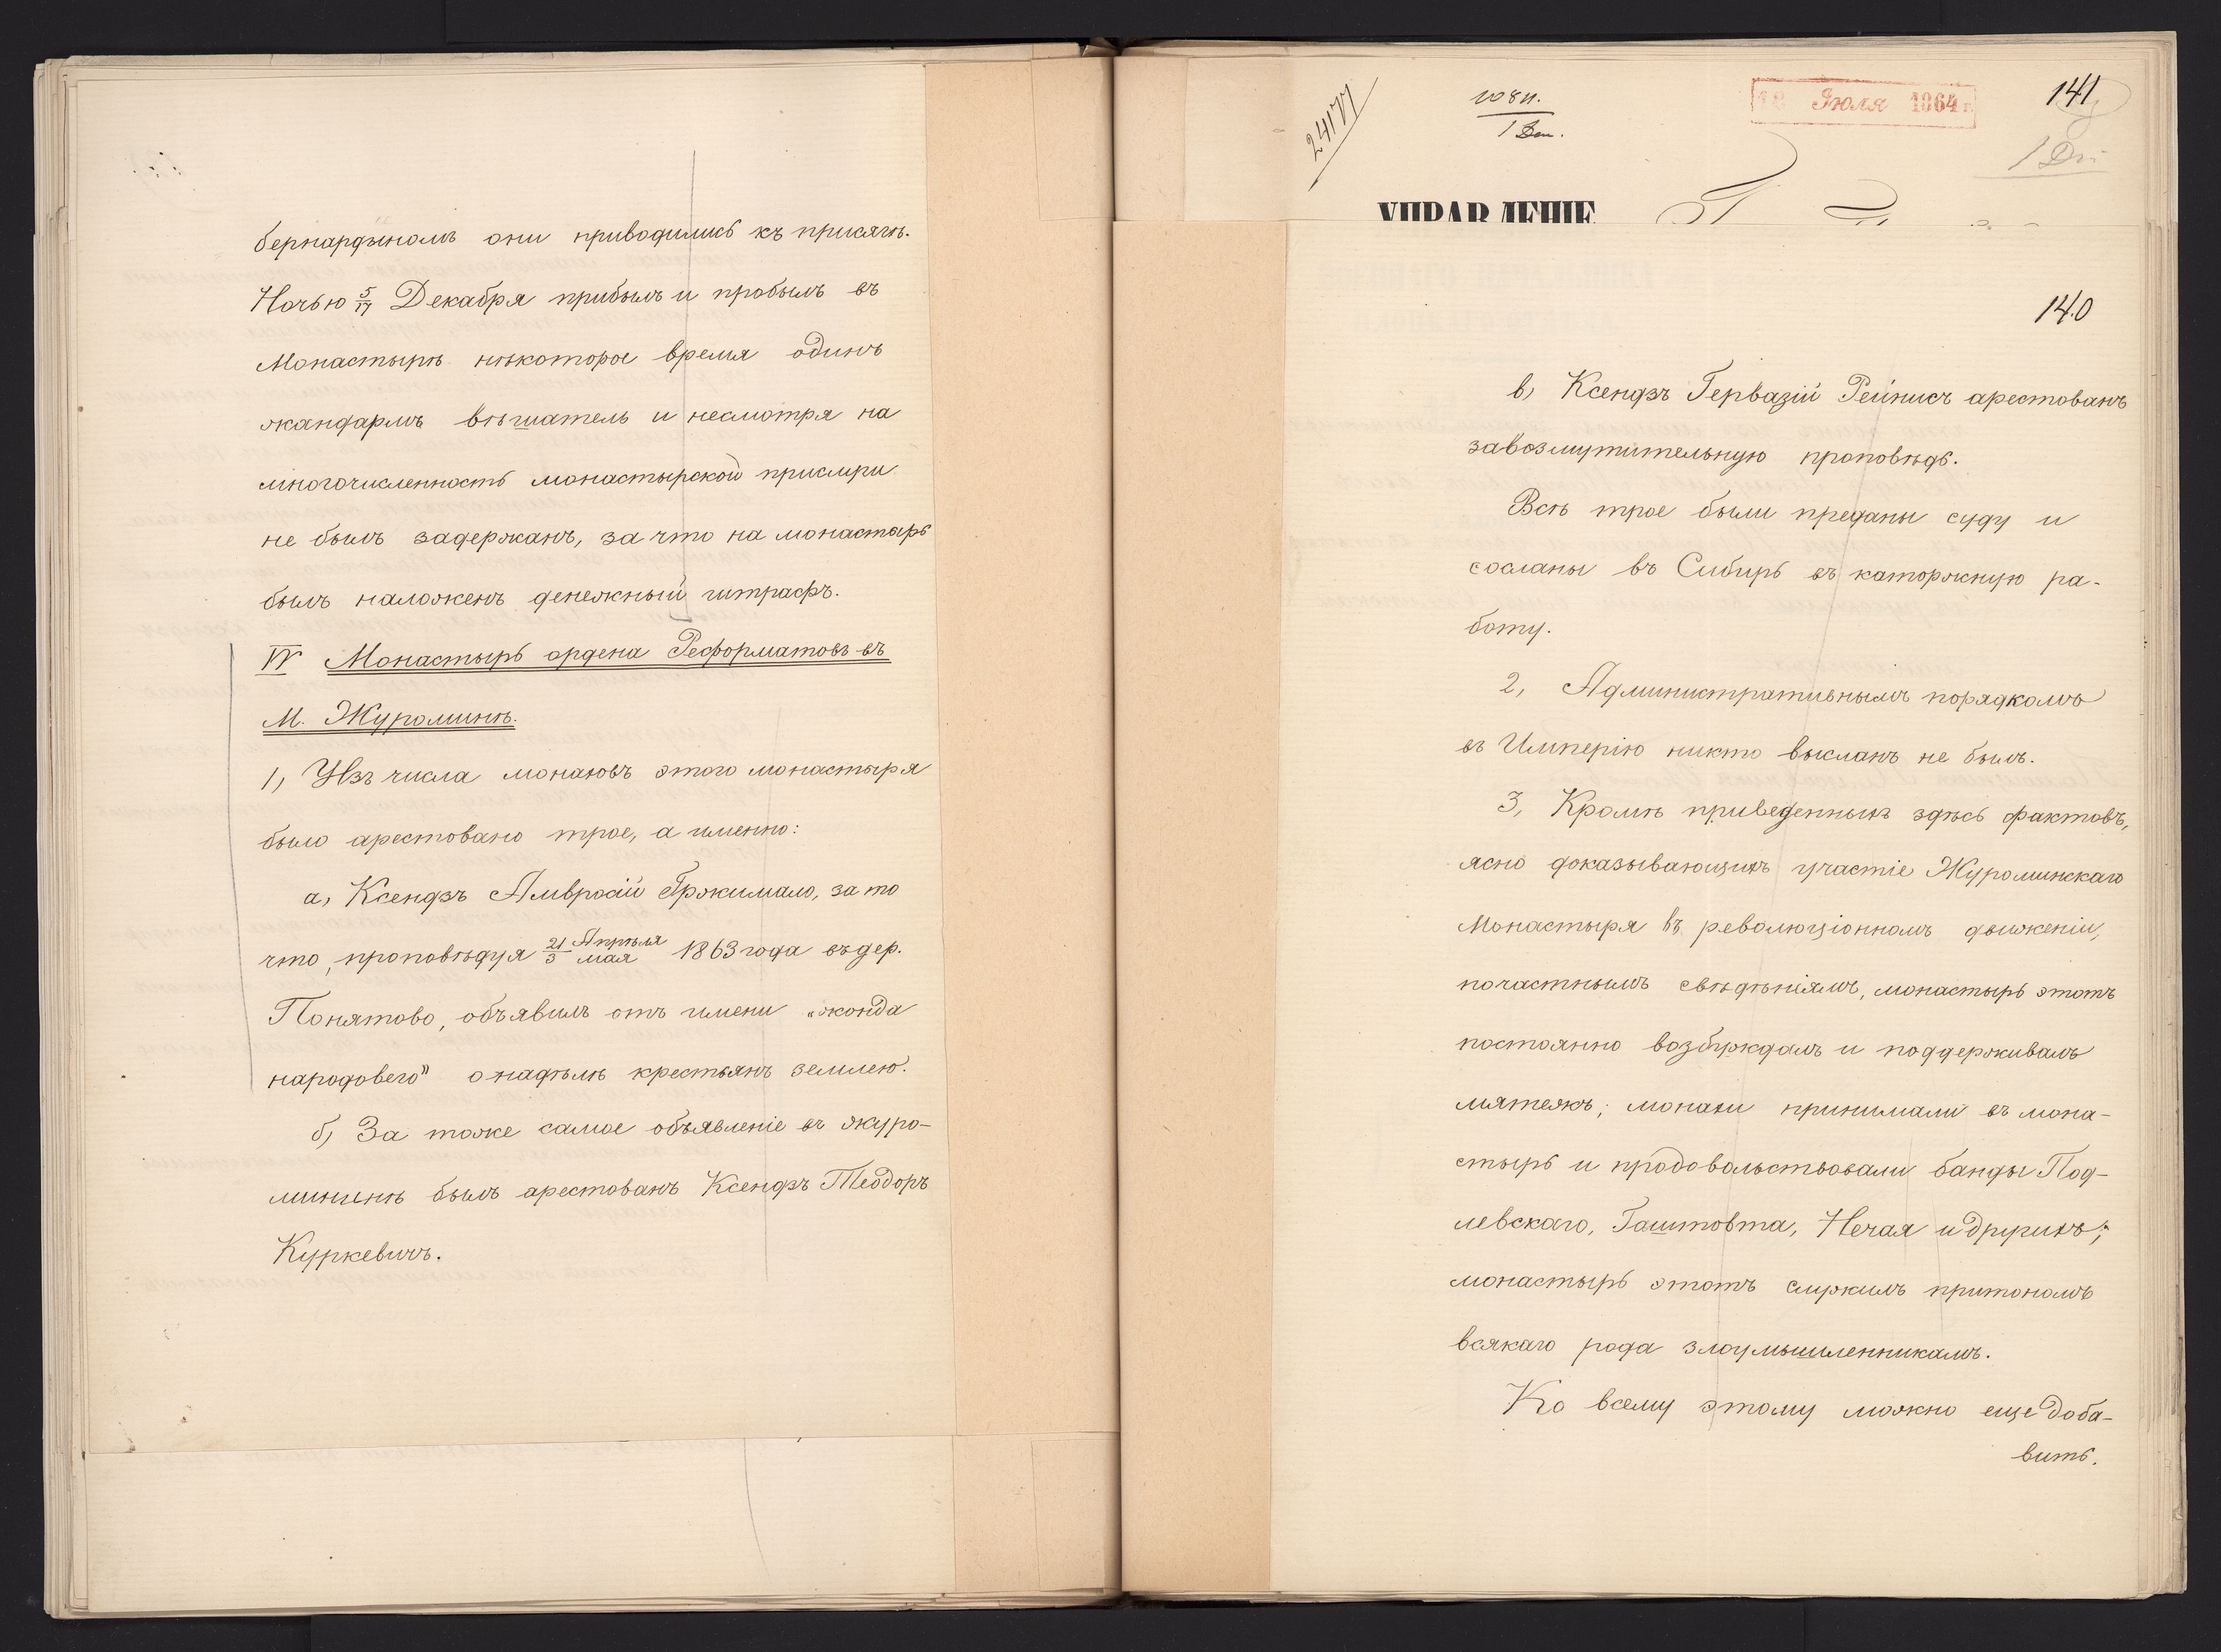 бернардыномъ они приводились къ присягѣ.
Ночью 5/17 Декабря прибылъ и пробылъ въ
Монастырѣ нѣкоторое время одинъ
жандармъ вѣшатель и несмотря на
многочисленность монастырской прислуги
не былъ задержанъ, за что на монастырь
былъ наложенъ денежный штрафъ.
IV Монастырь ордена Реформатовъ въ
М. Журоминѣ.
1, Изъ числа монаховъ этого монастыря
было арестовано трое, а именно:
а, Ксендзъ Амвросій Гржимало, за то
что, проповѣдуя 21 Апрѣля/3 мая 1863 года въ дер.
Понятово, объявилъ отъ имени „жонда
народовего" о надѣлѣ крестьянъ землею.
б, За тоже самое объявленіе въ Журо-
минѣ былъ арестованъ Ксендзъ Теодоръ
Куркевичъ.
24177
1 Дп.
18 Июля 1864 г.
141
УПРАВЛЕНІЕ
140
в, Ксендзъ Гервазій Рейнисъ арестованъ
за возмутительную проповѣдь.
Всѣ трое были преданы суду и
сосланы въ Сибирь въ каторжную ра-
боту.
2, Административнымъ порядкомъ
въ Имперію никто высланъ не былъ.
3, Кромѣ приведенныхъ здѣсь фактовъ,
ясно доказывающихъ участіе Журоминскаго
Монастыря въ революціонномъ движеніи,
по частнымъ свѣдѣніямъ, монастырь этотъ
постоянно возбуждалъ и поддерживалъ
мятежъ; монахи принимали въ мона-
стырь и продовольствовали банды Под-
левскаго, Гаштовта, Нечая и другихъ;
монастырь этотъ служилъ притономъ
всякаго рода злоумышленникамъ.
Ко всему этому можно еще доба-
вить.